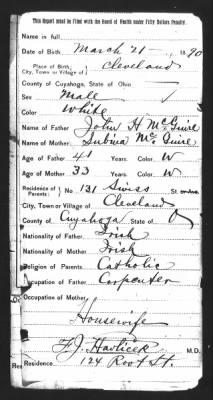 This Report must be Filed with the Board of Health under Fifty Dollars Penalty.
Name in full
Date of Birth March 21 1890
Place of Birth, Cleveland
City, Town or Village of
County of Cuyahoga, State of Ohio
Sex Male
Color White
Name of Father John H McGuire
Name of Mother McGuire
Age of Father 41 Years. Color W
Age of Mother 33 Years. Color W
Residence of Parents: No. 131 Swiss St.
City, Town or Village of Cleveland
County of Cuyahoga State of O
Nationality of Father Irish
Nationality of Mother Irish
Religion of Parents Catholic
Occupation of Father Carpenter
Occupation of Mother
Housewife
F. J. Havlicek M.D.
Residence 124 Root St.